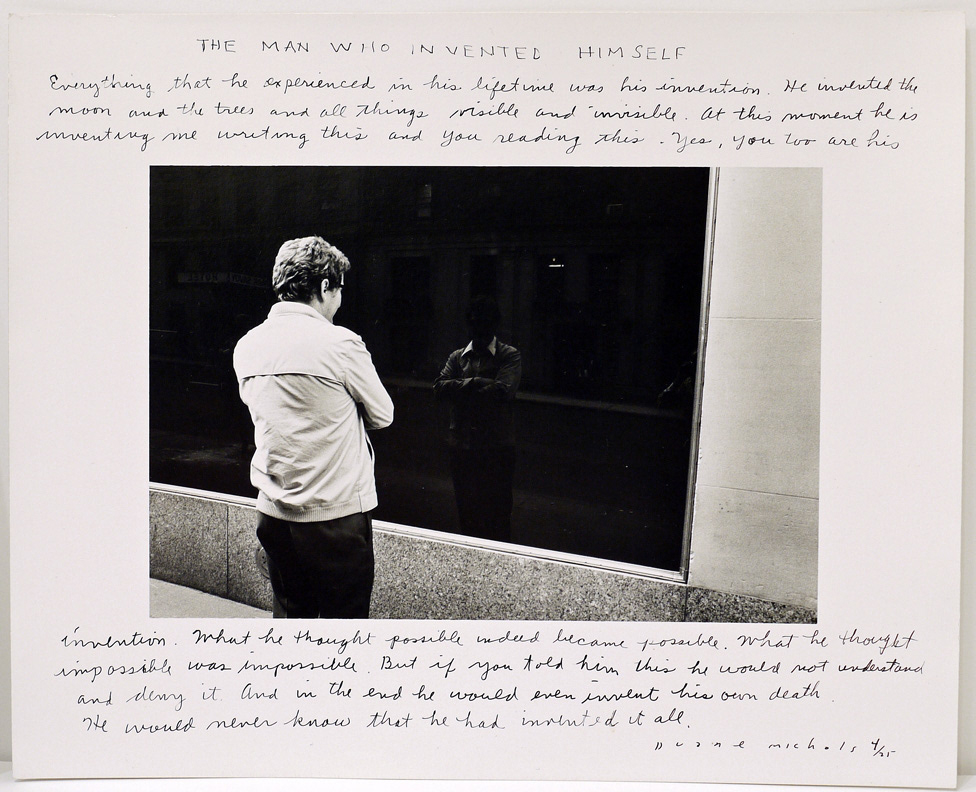 THE MAN WHO INVENTED HIMSELF
Everything that he experienced in his lifetime was his invention. He invented the
moon and the trees and all things visible and invisible. At this moment he is
inventing me writing this and you reading this. Yes, you too are his
invention. What he thought possible indeed became possible. What he thought
impossible was impossible. But if you told him this he would not understand
and deny it And in the end he would even invent his own death.
He would never know that he had invented it all.
Duane Michals 4/25